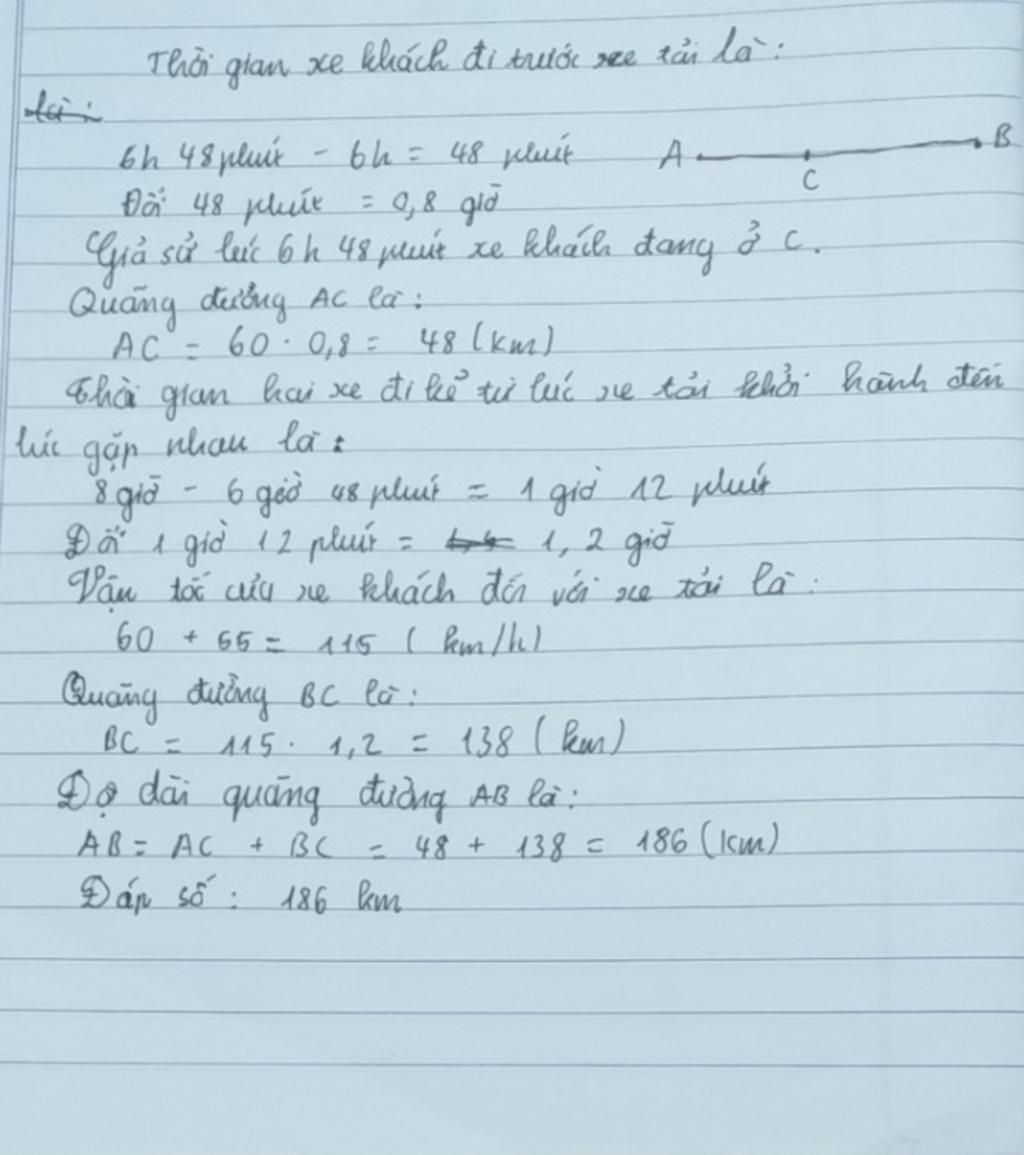 Thời gian xe khách đi trước xe tải là:
là:
6h 48 phút - 6h = 48 phút
A C B
Đổi 48 phút = 0,8 giờ
Giả sử lúc 6h 48 phút xe khách đang ở C.
Quãng đường AC là:
AC = 60 . 0,8 = 48 (km)
Thời gian hai xe đi kể từ lúc xe tải khởi hành đến
lúc gặp nhau là:
8 giờ - 6 giờ 48 phút = 1 giờ 12 phút
Đổi 1 giờ 12 phút = 1,2 giờ
Vận tốc của xe khách đối với xe tải là:
60 + 55 = 115 (km/h)
Quãng đường BC là:
BC = 115 . 1,2 = 138 (km)
Độ dài quãng đường AB là:
AB = AC + BC = 48 + 138 = 186 (km)
Đáp số: 186 km